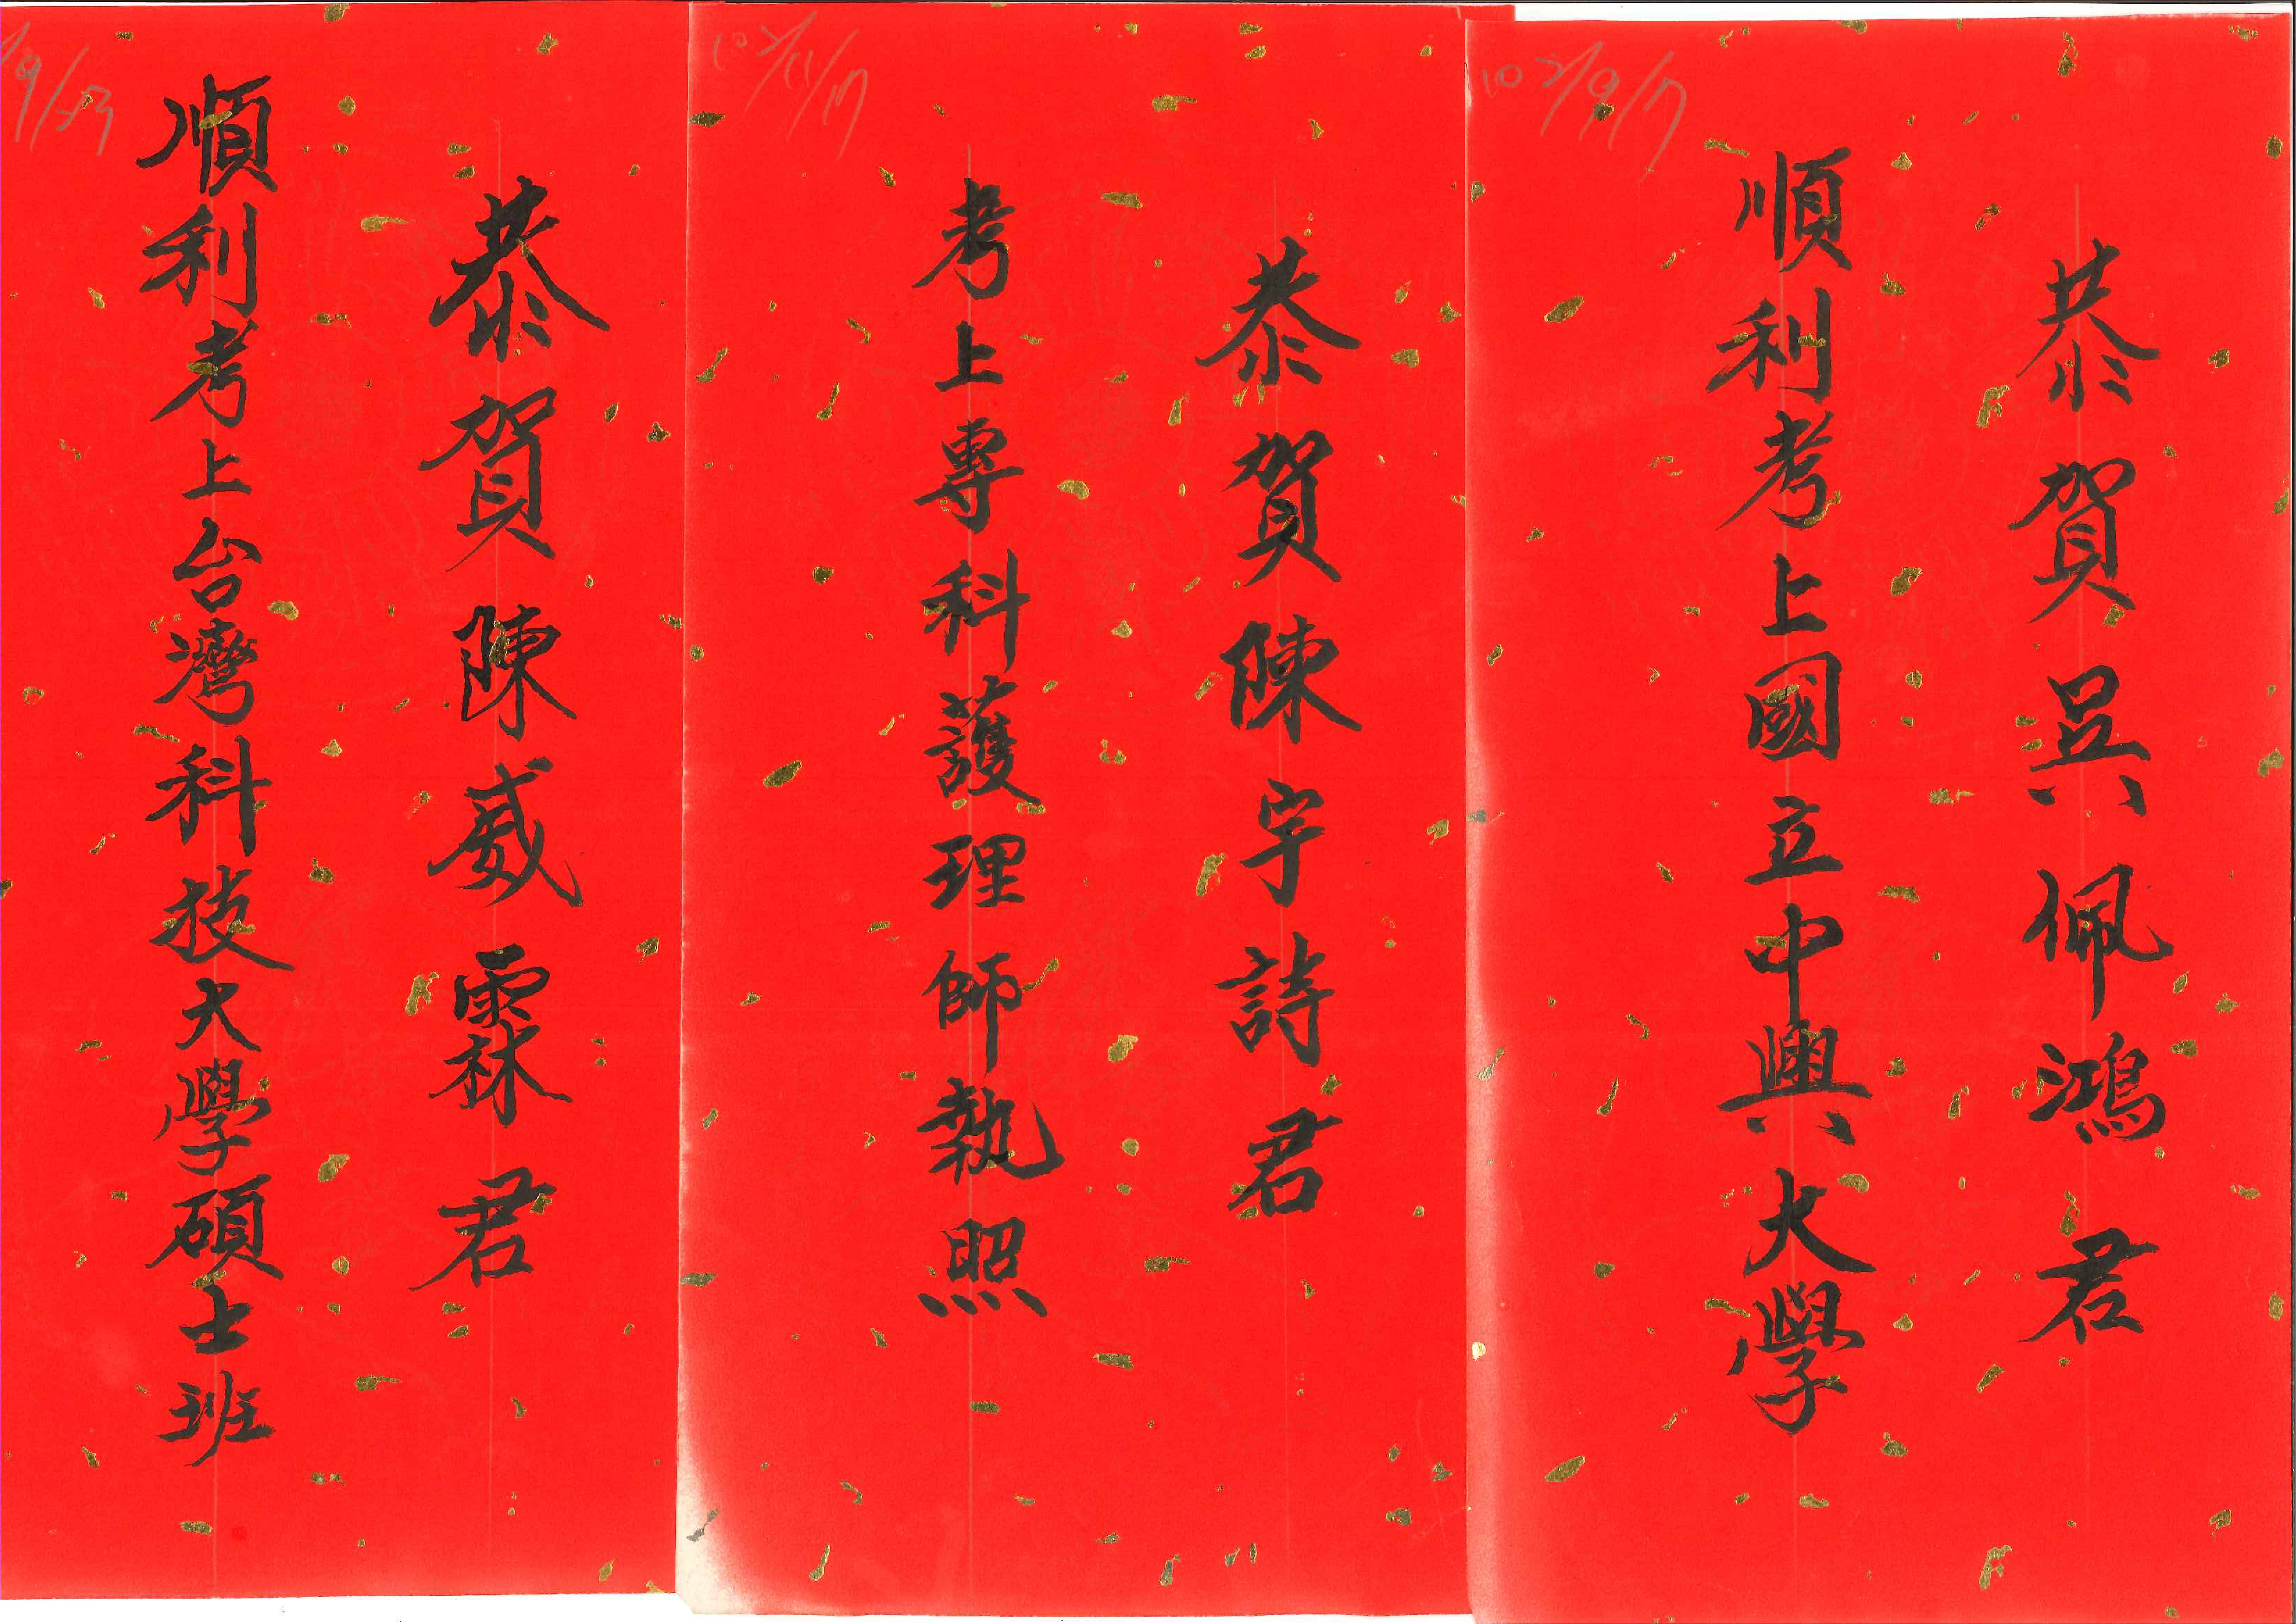 102/9/7
恭賀吳佩鴻君
順利考上國立中興大學
102/11/17
恭賀陳宇詩君
考上專科護理師執照
恭賀陳威霖君
順利考上台灣科技大學碩士班